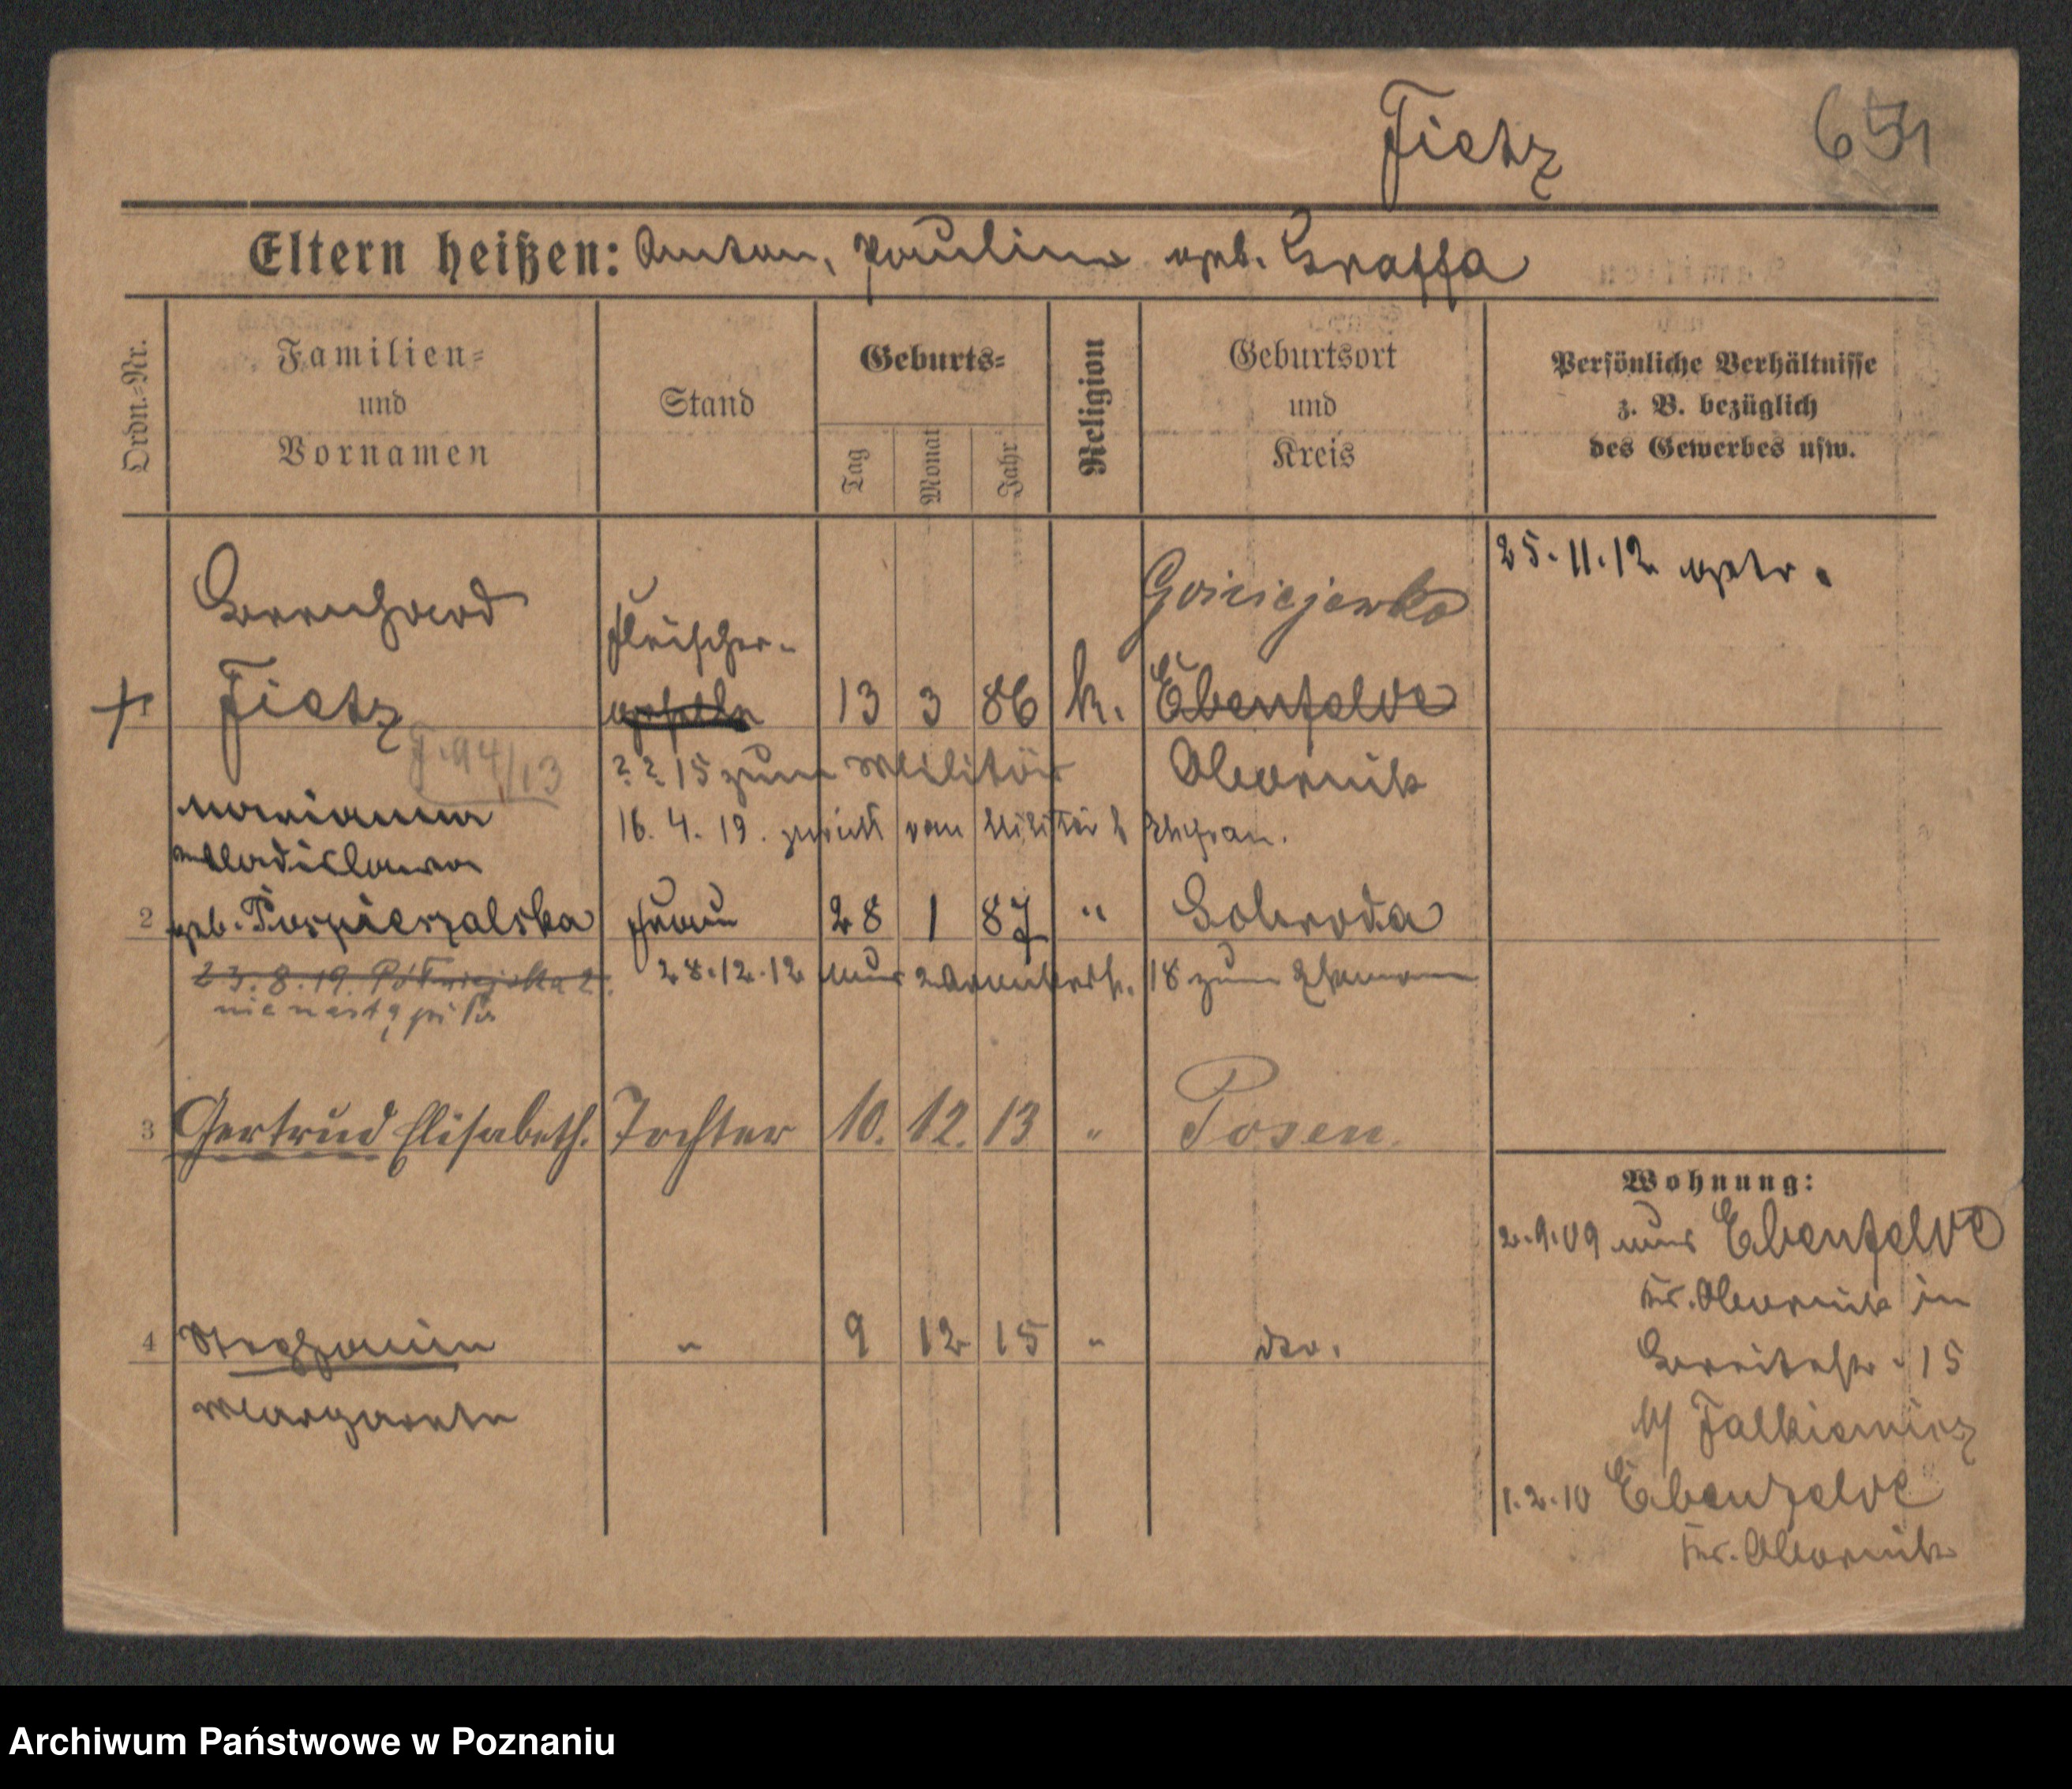 Fietz
654
Eltern heißen: Anton, Pauline geb. Graffa
Ordn.-Nr.
Familien-
und
Vornamen
Stand
Geburts-
Tag
Monat
Jahr
Religion
Geburtsort
und
Kreis
Persönliche Verhältnisse
z. B. bezüglich
des Gewerbes usw.
25.11.12 getr.
Bernhard
Fietz
Fleischer-
geselle
1
13 3 86 k.
Gościejewko
Ebenfelde
Obornik
J. 94/13
? ? 15 zum Militär
16. 4. 19. zurück vom Militär z Ehefrau.
Marianna
Wladislawa
2
geb. Pospieszalska
Frau
28 1 87 "
Bobroda
28.12.12 aus 18 zum Ehemann
23.8.19. Półwiejska 2.
nie nastąpiło
3
Gertrud Elisabeth.
Tochter
10. 12. 13 "
Posen.
4
Stephanie
Margarete
"
9 12 15 "
dto.
Wohnung:
2.9.09 aus Ebenfelde
Kr. Obornik in
Breitestr. 15
b/ Falkiewicz
1.2.10 Ebenfelde
Kr. Obornik
Archiwum Państwowe w Poznaniu